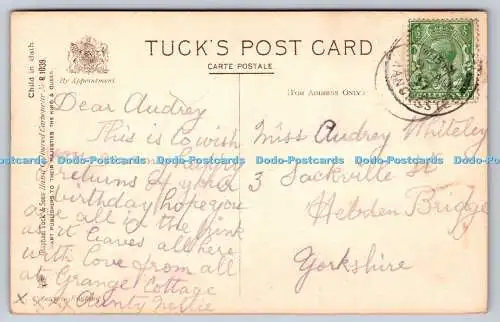 TUCK'S POST CARD
CARTE POSTALE
By Appointment
(FOR ADDRESS ONLY.)
Child in sash.
RAPHAEL TUCK & SONS
ART PUBLISHERS TO THEIR MAJESTIES THE KING & QUEEN
Dear Audrey
This is to wish
you many happy
returns of your
birthday hope you
are all in the pink
as it leaves all here
with love from all
at Grange Cottage
x x x Aunty Nellie
Miss Audrey Whiteley
3 Sackville St
Hebden Bridge
Yorkshire
Dodo-Postcards Dodo-Postcards Dodo-Postcards Dodo-Postcards Dodo-Postcards